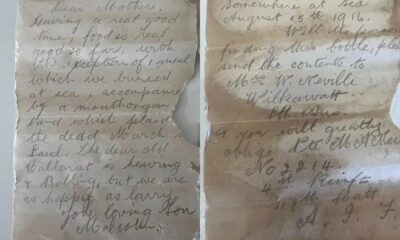 Dear Mother.
Having a real good
time, food is real
good so far, with
the exception of 1 meal
which we buried
at sea, accompanied
by a mouthorgan
band which plaid
the dead March in
Saul. The dear old
Ballarat is heaving
& Rolling, but we are
as happy as larry.
Your loving Son
Malcolm.
Somewhere at sea
August 15th 1916.
Will the
finding this bottle, please
send the contents to
Mrs W. Neville
Wilkawatt
& you will greatly
oblige Pte M A
No 2214
4th Reinf
48th Batt
A. I. F.